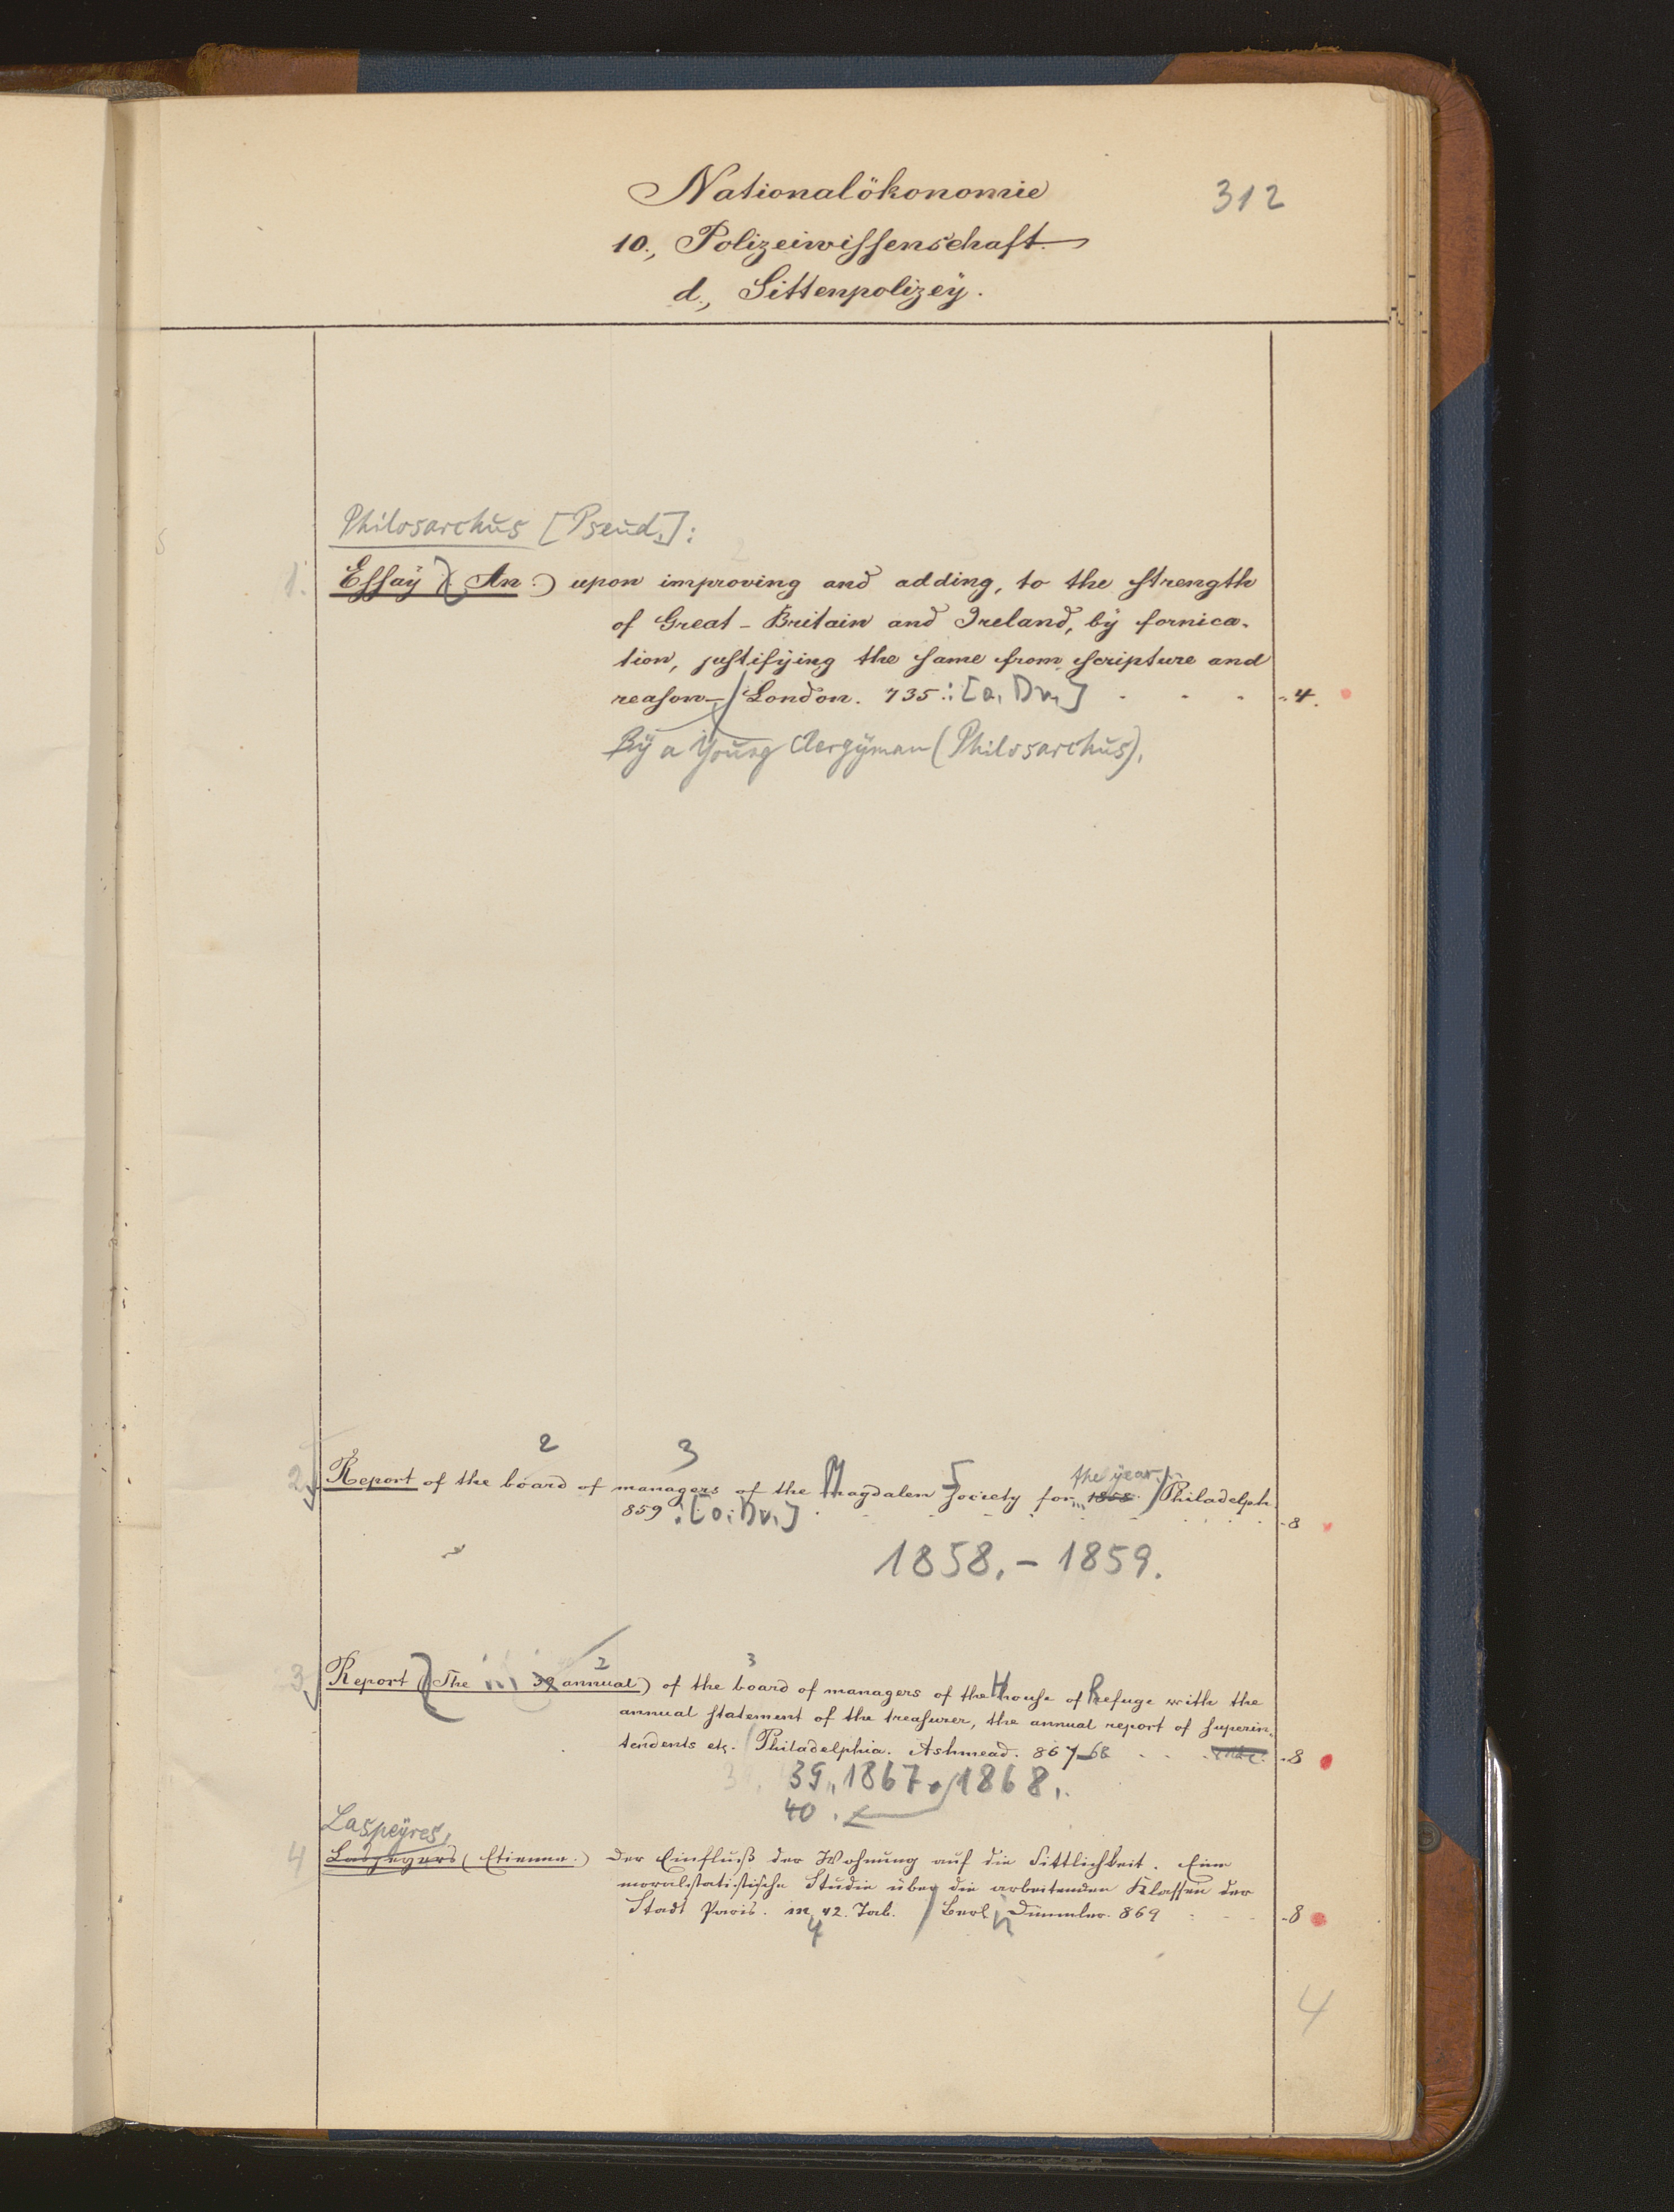 Nationalökonomie
312
10., Polizeiwissenschaft.
d., Sittenpolizeÿ.
Philosarchus [Pseud.]:
1. Essaÿ (An.) upon improving and adding, to the strength
of Great-Britain and Ireland, bÿ fornica-
tion, justifÿing the same from scripture and
reason- / London. 735.: [o. Dr.] . . . 4.
Bÿ a Young Clergÿman (Philosarchus).
2 3
2. Report of the board of managers of the Magdalen Society for the ÿear 1858. / Philadelph.
859 : [o. Dr.] . . . 8
1858. - 1859.
2 3
3 Report (The 39 annual) of the board of managers of the House of Refuge with the
annual statement of the treasurer, the annual report of superin-
tendents etc. / Philadelphia. Ashmead. 867-68 . . . 8
39., 1867 / 1868..
40.
Laspeÿres,
4 Laspeyers (Etienne.) Der Einfluß der Wohnung auf die Sittlichkeit. Eine
moralstatistische Studie über die arbeitenden Klassen der
Stadt Paris. m 42. Tab. / Berl. Dümmler. 869 . . . 8
4